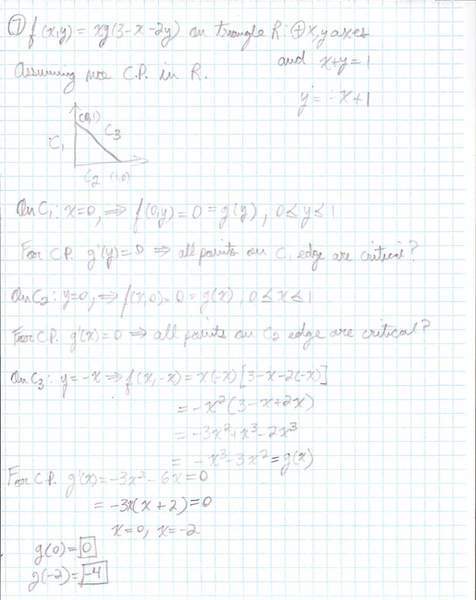 ⑦ f(x,y) = xy(3-x-2y) on triangle R: ⊕ x,y axes
and x+y=1
Assuming no C.P. in R.
y = -x+1
(0,1)
C₁ C₃
C₂ (1,0)
On C₁: x=0, ⇒ f(0,y) = 0 = g(y), 0≤y≤1
For C.P. g'(y)=0 ⇒ all points on C₁ edge are critical?
On C₂: y=0, ⇒ f(x,0)=0=g(x), 0≤x≤1
For C.P. g'(x)=0 ⇒ all points on C₂ edge are critical?
On C₃: y=-x ⇒ f(x,-x) = x(-x)[3-x-2(-x)]
= -x²(3-x+2x)
= -3x²+x³-2x³
= -x³-3x² = g(x)
For C.P. g'(x) = -3x²-6x=0
= -3x(x+2)=0
x=0, x=-2
g(0)=0
g(-2)=-4